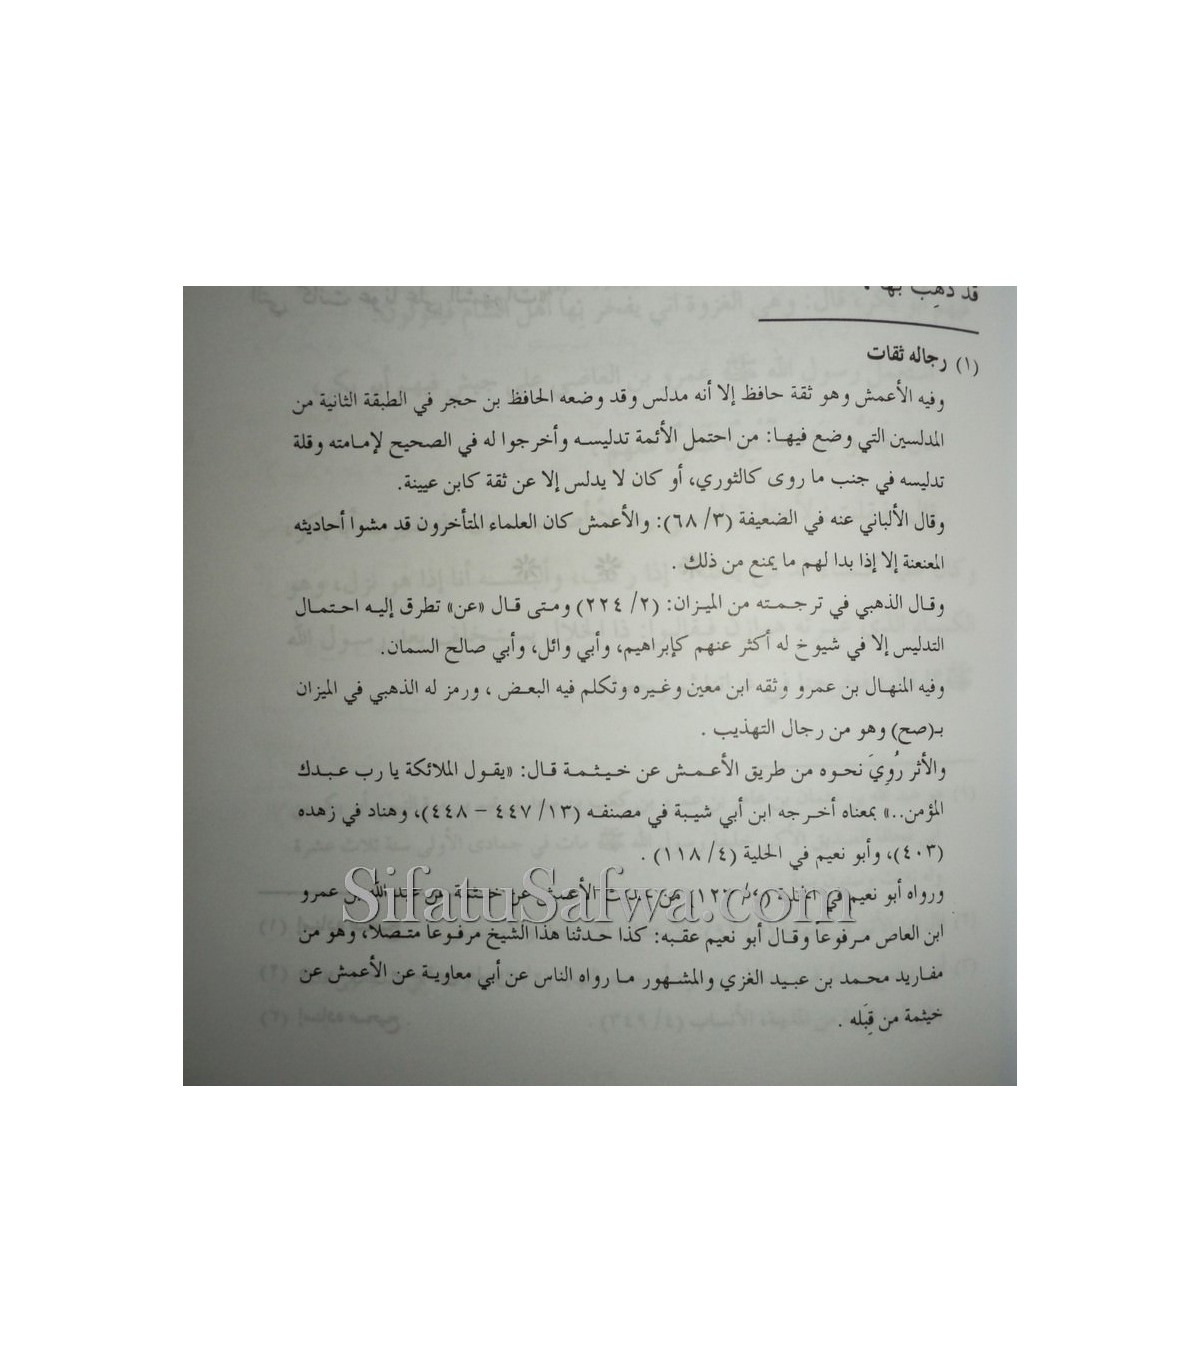 قد ذهب بها .
(١) رجاله ثقات
وفيه الأعمش وهو ثقة حافظ إلا أنه مدلس وقد وضعه الحافظ بن حجر في الطبقة الثانية من
المدلسين التي وضع فيها: من احتمل الأئمة تدليسه وأخرجوا له في الصحيح لإمامته وقلة
تدليسه في جنب ما روى كالثوري، أو كان لا يدلس إلا عن ثقة كابن عيينة.
وقال الألباني عنه في الضعيفة (٣/ ٦٨): والأعمش كان العلماء المتأخرون قد مشوا أحاديثه
المعنعنة إلا إذا بدا لهم ما يمنع من ذلك .
وقال الذهبي في ترجمته من الميزان: (٢/ ٢٢٤) ومتى قال «عن» تطرق إليه احتمال
التدليس إلا في شيوخ له أكثر عنهم كإبراهيم، وأبي وائل، وأبي صالح السمان.
وفيه المنهال بن عمرو وثقه ابن معين وغيره وتكلم فيه البعض ، ورمز له الذهبي في الميزان
بـ(صح) وهو من رجال التهذيب .
والأثر رُوِيَ نحوه من طريق الأعمش عن خيثمة قال: «يقول الملائكة يا رب عبدك
المؤمن..» بمعناه أخرجه ابن أبي شيبة في مصنفه (١٣/ ٤٤٧ - ٤٤٨)، وهناد في زهده
(٤٠٣)، وأبو نعيم في الحلية (٤/ ١١٨) .
ورواه أبو نعيم في الحلية من الأعمش عن خيثمة عن عبد الله بن عمرو
SifatuSafwa.com
ابن العاص مرفوعاً وقال أبو نعيم عقبه: كذا حدثنا هذا الشيخ مرفوعاً متصلاً، وهو من
مفاريد محمد بن عبيد الغزي والمشهور ما رواه الناس عن أبي معاوية عن الأعمش عن
خيثمة من قِبَله .